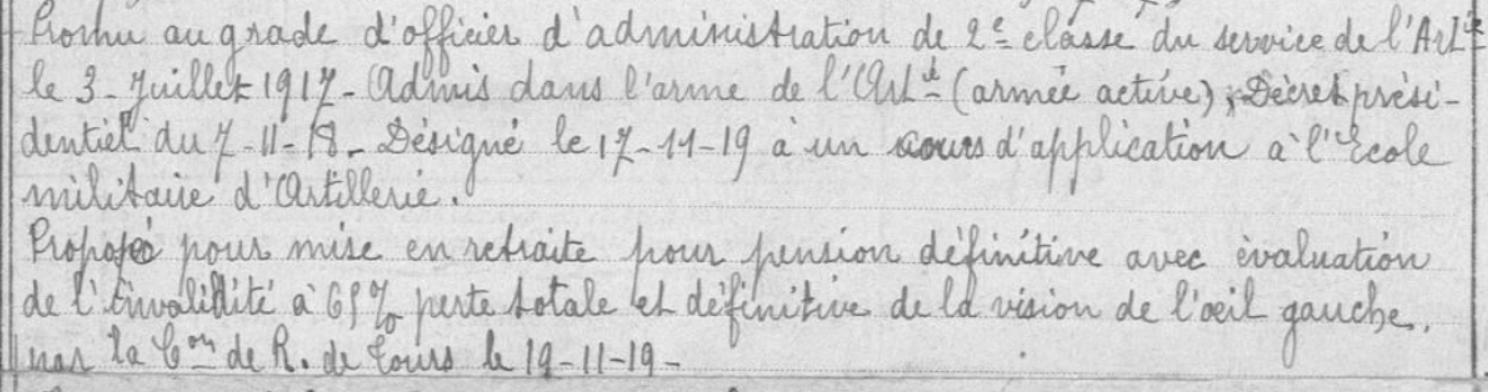 Promu au grade d'officier d'administration de 2e classe du service de l'Artie
le 3 - Juillet 1917 - Admis dans l'arme de l'Artie (armée active), Décret prési-
dentiel du 7-11-18. Désigné le 17-11-19 à un cours d'application à l'Ecole
militaire d'Artillerie.
Proposé pour mise en retraite pour pension définitive avec évaluation
de l'invalidité à 65% perte totale et définitive de la vision de l'œil gauche.
par la Con de R. de Tours le 19-11-19 -